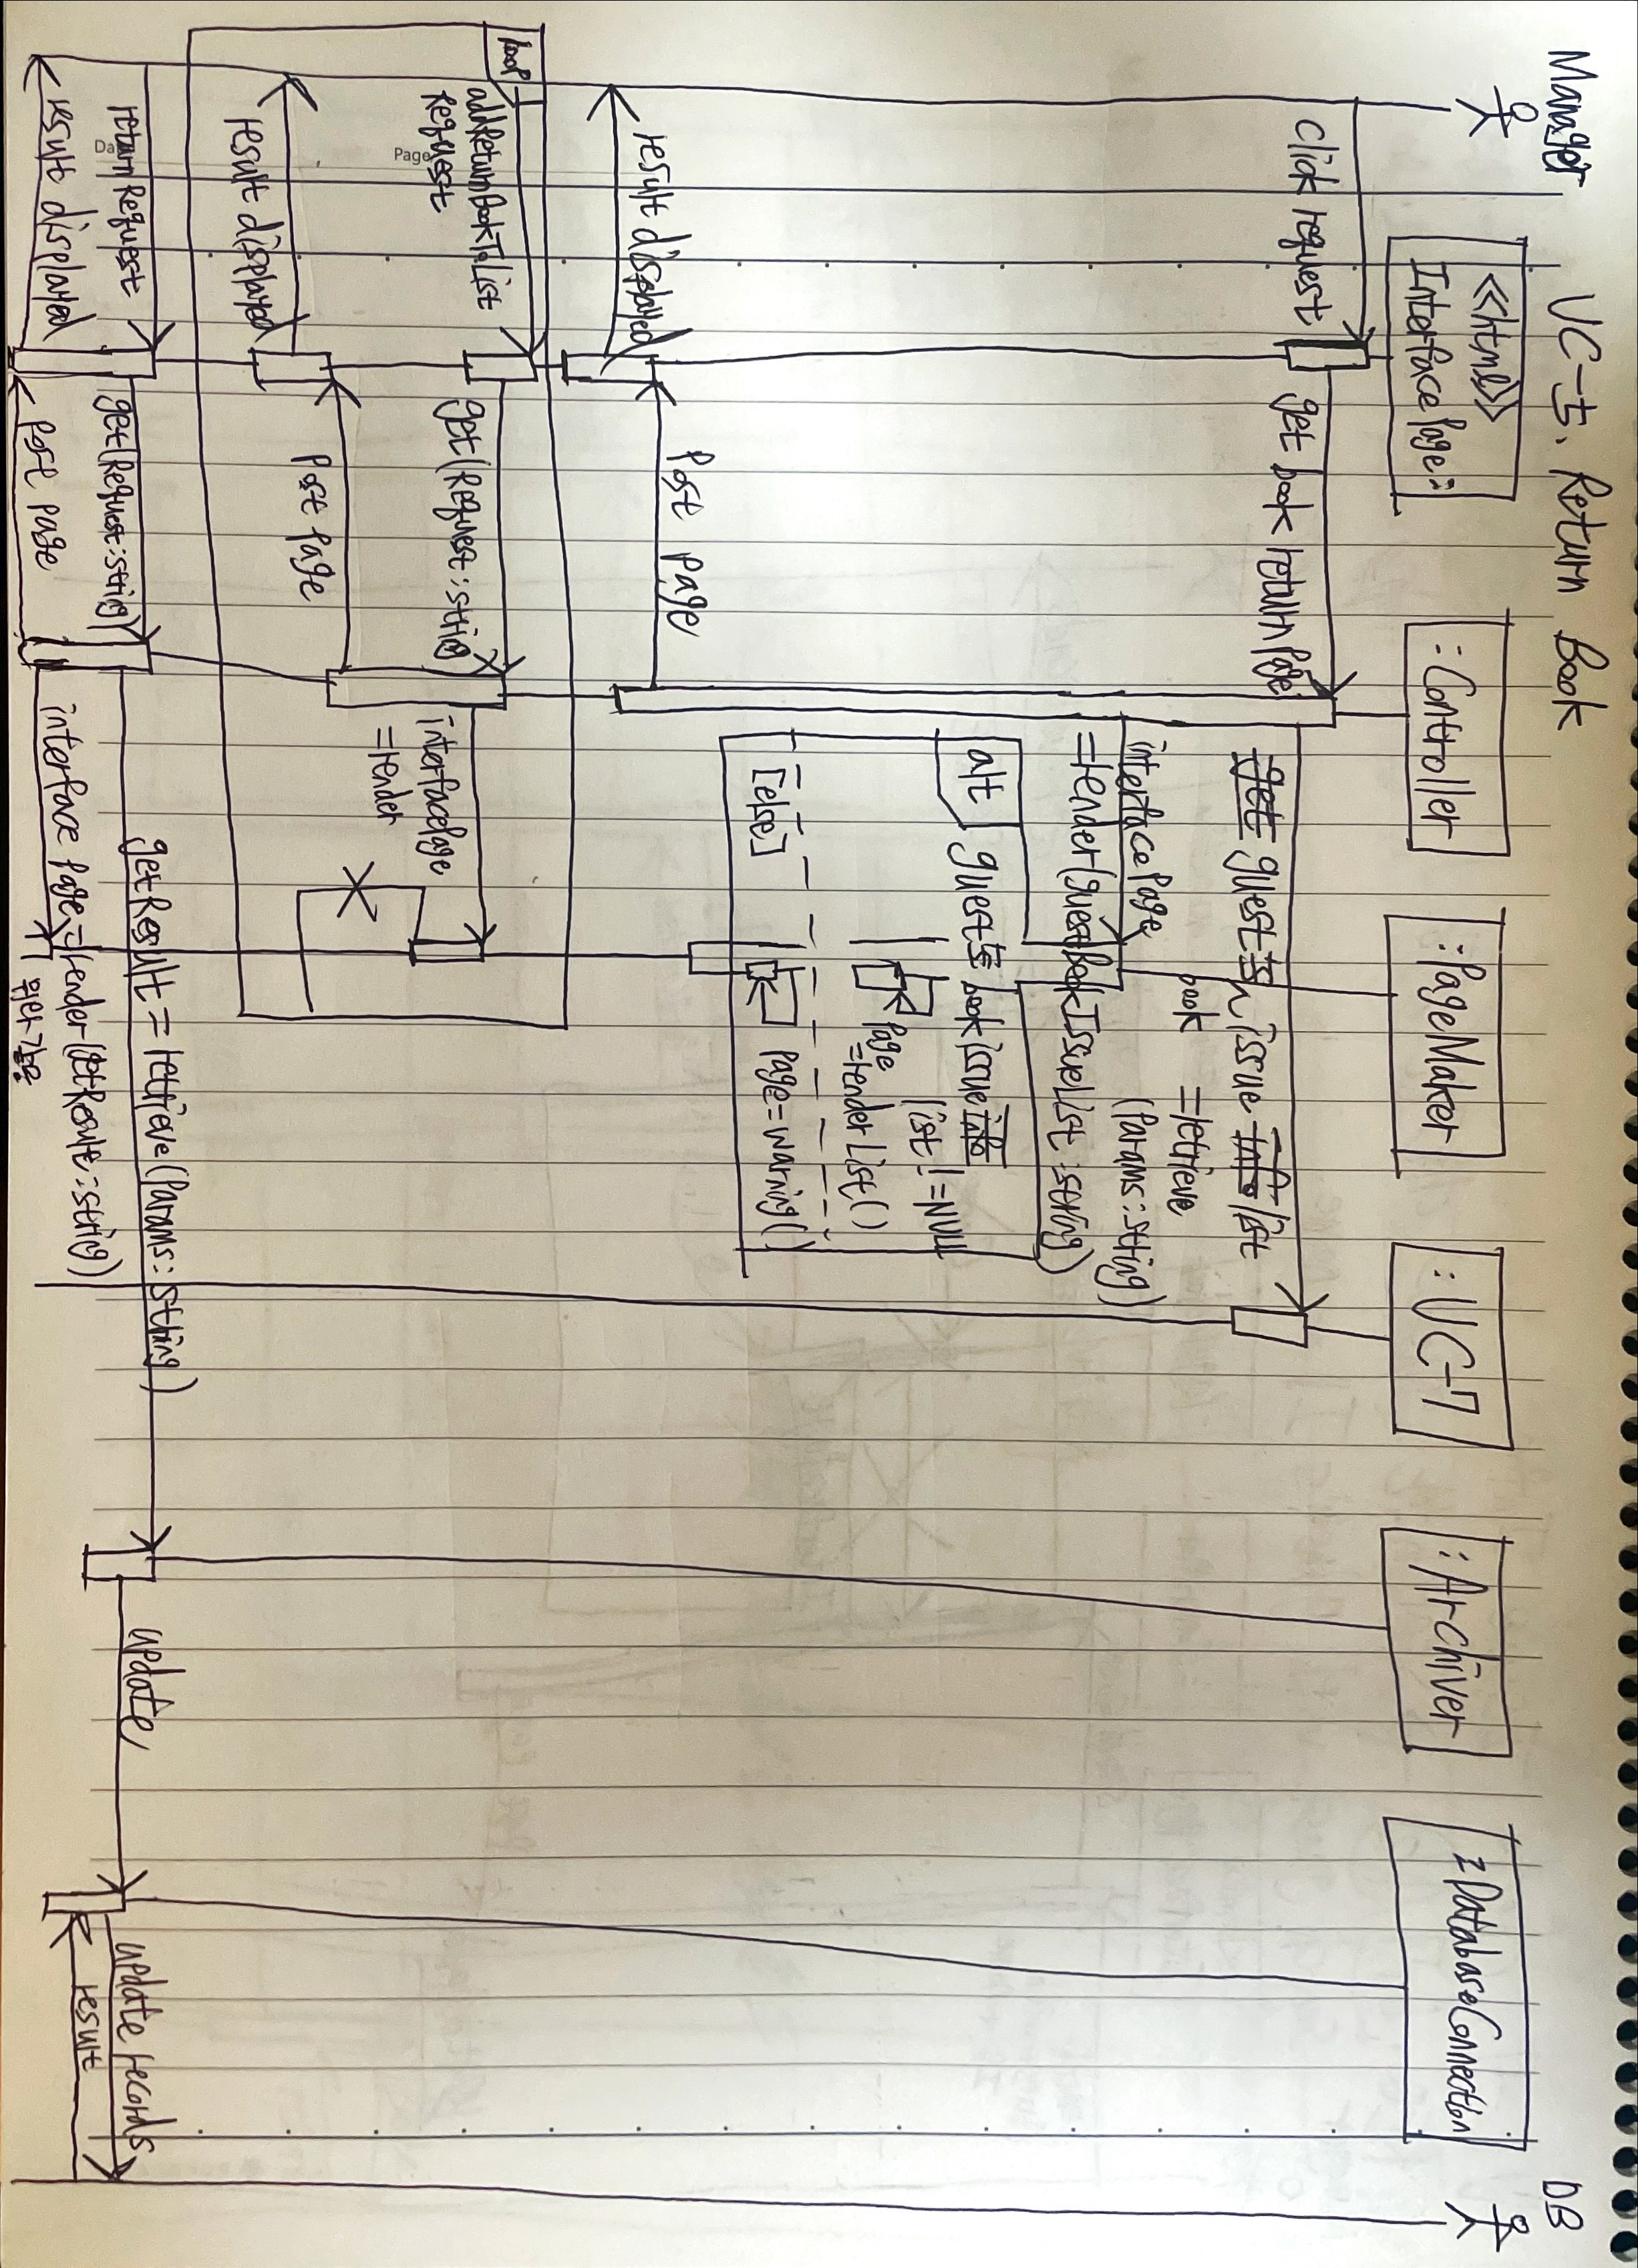 UC-5. Return Book
Manager
<<html>>
Interface Page:
:Controller
:PageMaker
:UC-7
:Archiver
:DatabaseConnection
DB
click request
get book return page
guest의 issue list
book
=retrieve
(Params:string)
interface Page
=render(guestBookIssueList:string)
alt
guest의 book issue
list!=NULL
Page
=renderList()
[else]
Page=warning()
Post Page
result displayed
loop
addReturnBookToList
Request
get(Request:string)
interfacePage
=render
Post Page
result displayed
return Request
get(Request:string)
getResult=retrieve(Params:string)
update
update records
result
interface Page=render(getResult:string)
post page
result displayed
Page